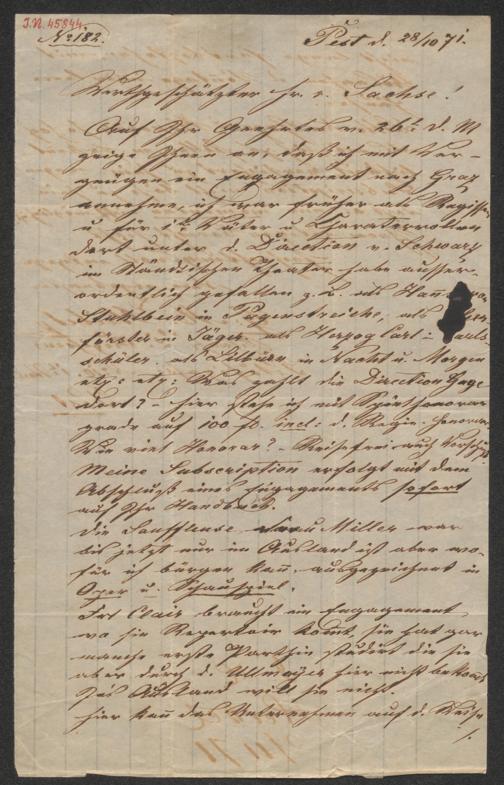 I.N. 45844.
No 182.
Pest d. 28/10 71.
Werthgeschätzter Hr. v. Sachse!
Auf Ihr Geehrtes v. 26t d. M
zeige Ihnen an, daß ich mit Ver-
gnügen ein Engagement nach Graz
annehme, ich war früher als Regisseur
u für 1te Väter u Charakterrollen
dort unter d. Direction v. Schwarz
im Ständischen Theater habe ausser-
ordentlich gefallen z. b. als
Stahlbein in Pagenstreiche, als
förster in Jäger als Herzog Carl
schüler, als in Nacht u. Morgen
etz: etz: Was zahlt die Direction Gage
dort? hier stehe ich mit Spielhonorar
grade auf 100 fl. incl: d. Regie-honorar
Wie viel Honorar? – Reise frei auch Vorschuß
Meine Subscription erfolgt mit dem
Abschluß eines Engagements sofort
auf Ihr Handbuch.
Die Souffleuse Frau Miller war
bis jetzt nur im Ausland ist aber wo-
für ich bürgen kann, ausgezeichnet in
Oper u. Schauspiel.
Frl Clair braucht ein Engagement
wo sie Repertoir komt, sie hat gar
manche erste Parthie studirt die sie
aber durch d. Ullmayer hier nicht bekomt
Ins Ausland will sie nicht.
hier kan das Unternehmen auf d. Weise
./.